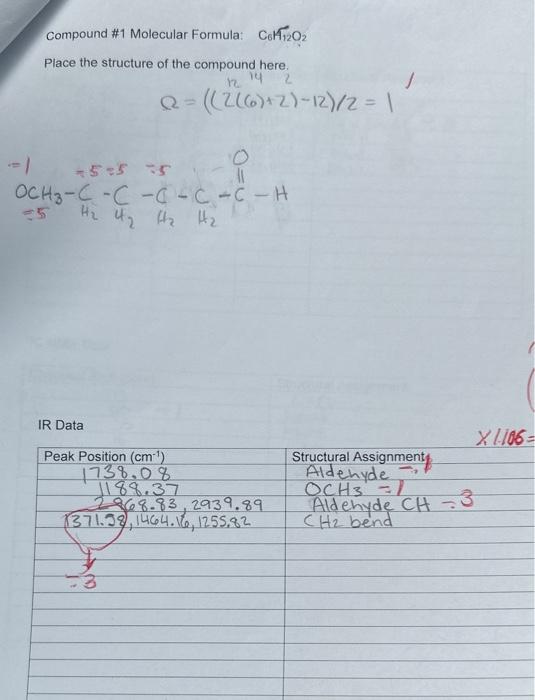 Compound #1 Molecular Formula: C6H12O2
Place the structure of the compound here.
12 14 2
Ω = ((2(6)+2)-12)/2 = 1
1
-1 -5 -5 -.5
O
||
OCH3-C-C-C-C-C-H
-.5 H2 H2 H2 H2
IR Data
X1.106=
Peak Position (cm-1) Structural Assignment
1738.08 Aldehyde -.1
1188.37 OCH3 -1
2868.83, 2939.89 Aldehyde CH -.3
1371.38, 1464.16, 1255.82 CH2 bend
-.3